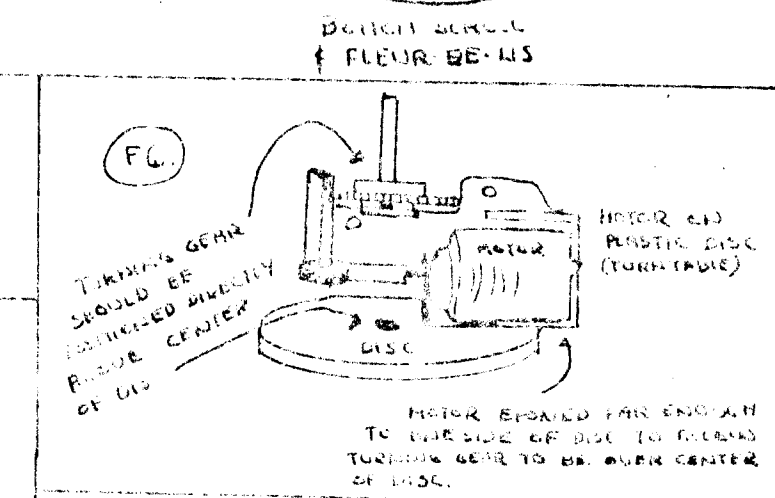 BOTTOM SCROLL
& FLEUR-DE-LIS
F6.
TURNING GEAR
SHOULD BE
POSITIONED DIRECTLY
ABOVE CENTER
OF DISC
MOTOR ON
PLASTIC DISC
(TURNTABLE)
MOTOR
DISC
MOTOR EPOXIED FAR ENOUGH
TO ONE SIDE OF DISC TO ALLOW
TURNING GEAR TO BE OVER CENTER
OF DISC.